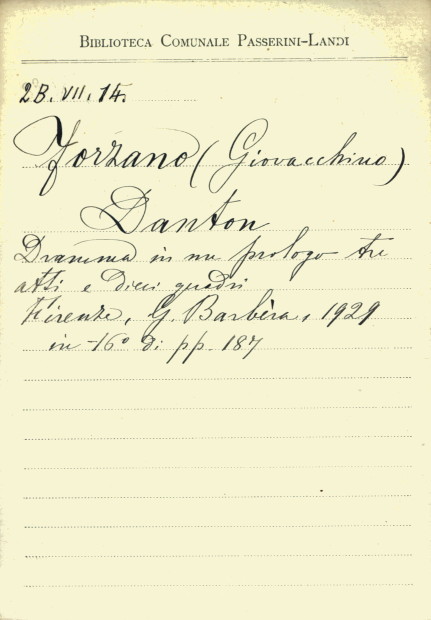 BIBLIOTECA COMUNALE PASSERINI-LANDI
2B. VII. 14.
Forzano (Giovacchino)
Danton
Dramma in un prologo tre
atti e dieci quadri
Firenze, G. Barbèra, 1929
in -16° di pp. 187